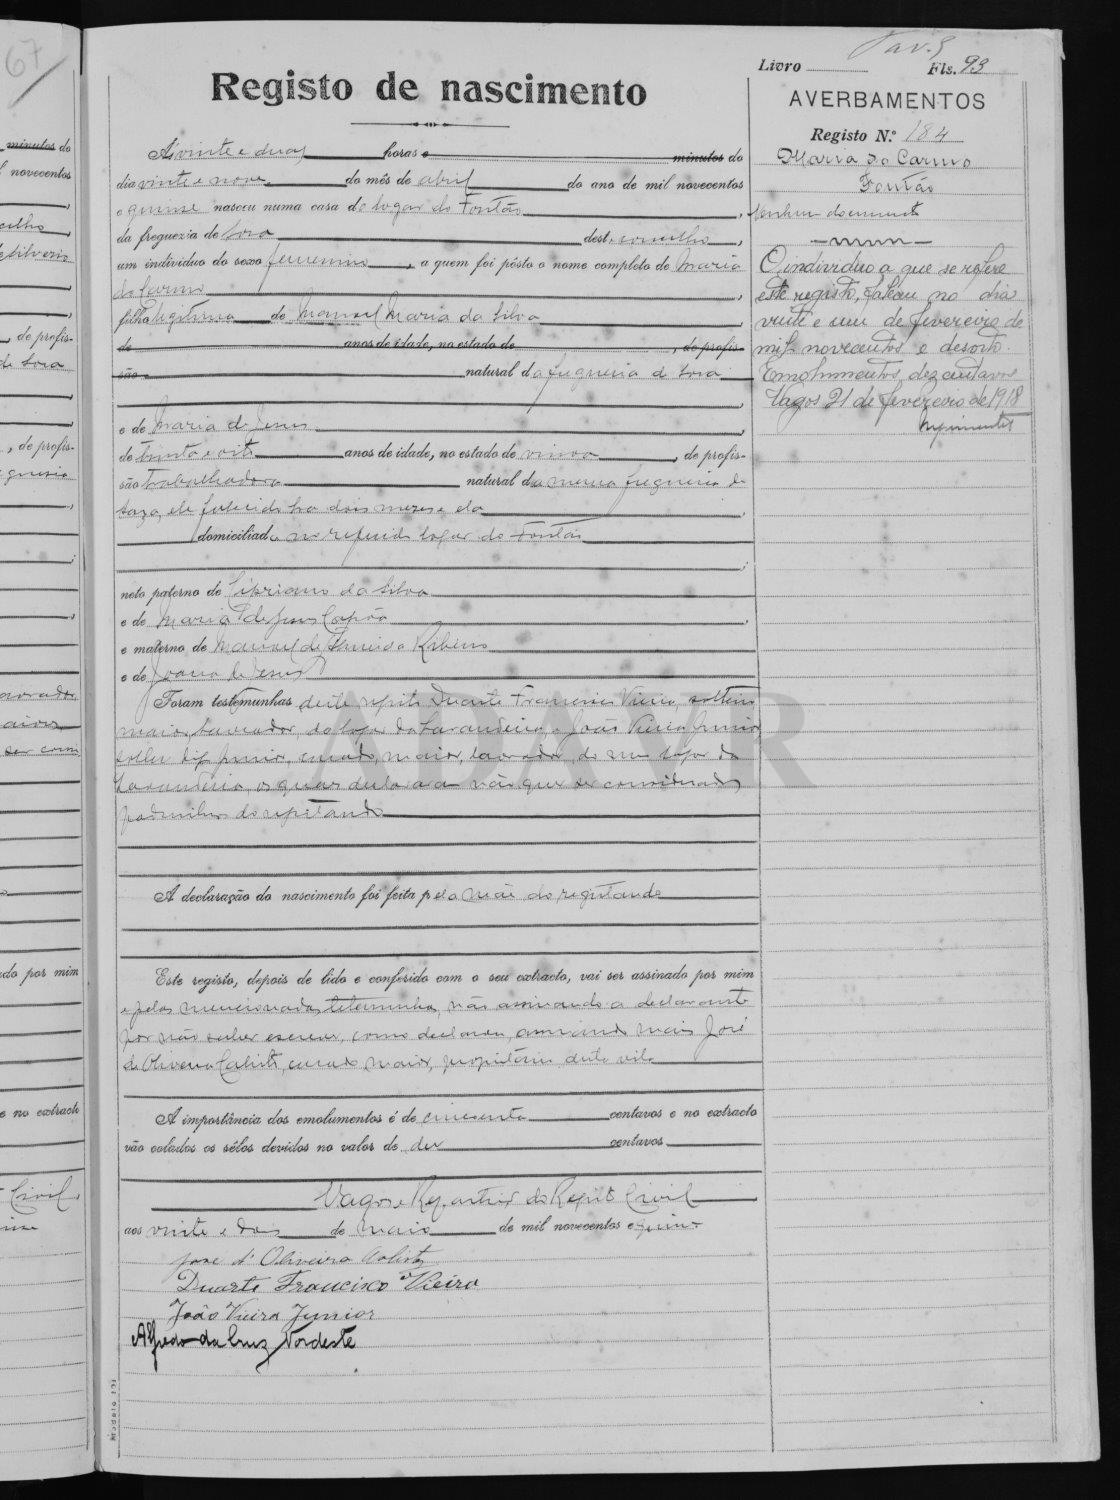 67
minutos do
novecentos
Silverio
, de profis-
de Sora
, de profis-
do por mim
e no extracto
Civil
Livro Fls. 93
Registo de nascimento
AVERBAMENTOS
Registo N.º 184
Maria do Carmo
Fontão
Nenhum documento
O individuo a que se refere
este registo, faleceu no dia
vinte e um de fevereiro de
mil novecentos e desoito.
Emolumentos dez centavos
Vagos 21 de fevereiro de 1918
Ás vinte e duas horas e minutos do
dia vinte e nove do mês de abril do ano de mil novecentos
e quinze nasceu numa casa do logar do Fontão,
da freguezia de Sora dest. concelho,
um individuo do sexo femenino, a quem foi pôsto o nome completo de Maria
do Carmo,
filha legitima de Manuel Maria da Silva,
de anos de idade, no estado de, de profis-
são natural da freguesia de Sora
e de Maria de Jesus,
de trinta e oito anos de idade, no estado de viuva, de profis-
são trabalhadora natural da mesma freguesia de
Soza, ele falecido ha dois meses e ela
domiciliada no referido logar do Fontão
neto paterno de Cipriano da Silva
e de Maria de Jesus Capôa,
e materno de Manuel de Ribeiro
e de Joana de Jesus
Foram testemunhas deste registo Duarte Francisco Vieira, solteiro
maior, lavrador, do logar da Lavandeira, e João Vieira Junior
casado, maior, lavrador, do mesmo logar da
Lavandeira, os quais declararam não querer ser considerados
padrinhos do registando
A declaração do nascimento foi feita pela mãe do registando
Este registo, depois de lido e conferido com o seu extracto, vai ser assinado por mim
e pelas mencionadas testemunhas, não assinando a declarante
por não saber escrever, como declarou, assinando mais José
de Oliveira Calisto, casado, maior, proprietário, desta vila
A importância dos emolumentos é de cincoenta centavos e no extracto
vão colados os sêlos devidos no valor de dez centavos
Vagos e Repartição do Registo Civil
aos vinte e dois de maio de mil novecentos e quinze
José d'Oliveira Calisto
Duarte Francisco Vieira
João Vieira Junior
Alfredo da Cruz Nordeste
Modelo 101
ADAVR